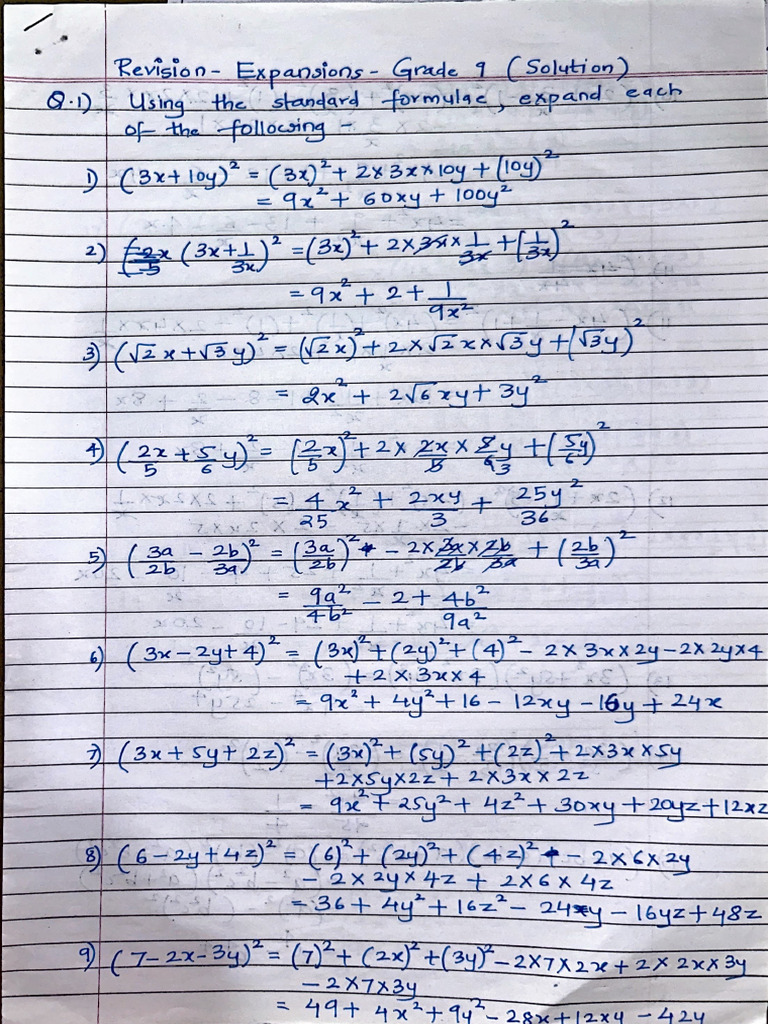 Revision - Expansions - Grade 9 (Solution)
Q.1) Using the standard formulae, expand each
of the following -
1) (3x + 10y)² = (3x)² + 2 × 3x × 10y + (10y)²
= 9x² + 60xy + 100y²
2) (3x + 1/3x)² = (3x)² + 2 × 3x × 1/3x + (1/3x)²
= 9x² + 2 + 1/9x²
3) (√2 x + √3 y)² = (√2 x)² + 2 × √2 x × √3 y + (√3 y)²
= 2x² + 2√6 xy + 3y²
4) (2x/5 + 5/6 y)² = (2/5 x)² + 2 × 2x/5 × 5/6 y + (5y/6)²
= 4/25 x² + 2xy/3 + 25y²/36
5) (3a/2b - 2b/3a)² = (3a/2b)² - 2 × 3a/2b × 2b/3a + (2b/3a)²
= 9a²/4b² - 2 + 4b²/9a²
6) (3x - 2y + 4)² = (3x)² + (2y)² + (4)² - 2 × 3x × 2y - 2 × 2y × 4
+ 2 × 3x × 4
= 9x² + 4y² + 16 - 12xy - 16y + 24x
7) (3x + 5y + 2z)² = (3x)² + (5y)² + (2z)² + 2 × 3x × 5y
+ 2 × 5y × 2z + 2 × 3x × 2z
= 9x² + 25y² + 4z² + 30xy + 20yz + 12xz
8) (6 - 2y + 4z)² = (6)² + (2y)² + (4z)² - 2 × 6 × 2y
- 2 × 2y × 4z + 2 × 6 × 4z
= 36 + 4y² + 16z² - 24y - 16yz + 48z
9) (7 - 2x - 3y)² = (7)² + (2x)² + (3y)² - 2 × 7 × 2x + 2 × 2x × 3y
- 2 × 7 × 3y
= 49 + 4x² + 9y² - 28x + 12xy - 42y